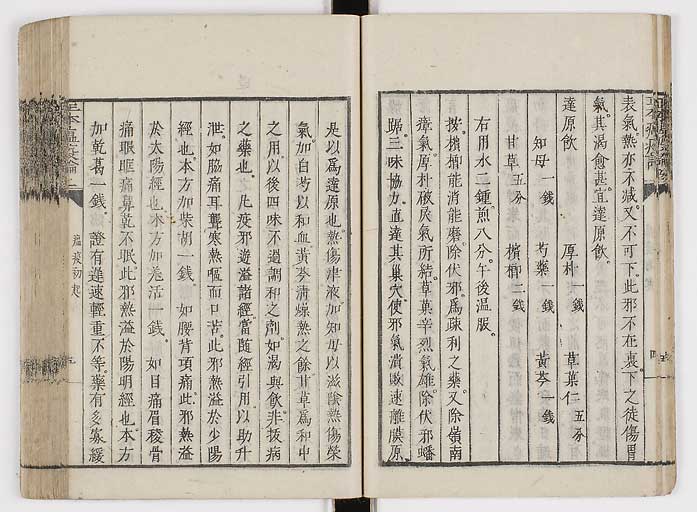 表氣熱亦不減又不可下此邪不在裏下之徒傷胃
氣其渴愈甚宜達原飲
達原飲
厚朴一錢 草菓仁五分
知母一錢 芍藥一錢 黃芩一錢
甘草五分 檳榔二錢
右用水二鍾煎八分午後温服
按檳榔能消能磨除伏邪爲疎利之藥又除嶺南
瘴氣厚朴破戾氣所結草菓辛烈氣雄除伏邪蟠
踞三味協力直達其巢穴使邪氣潰敗速離膜原
是以爲達原也熱傷津液加知母以滋陰熱傷榮
氣加白芍以和血黃芩淸燥熱之餘甘草爲和中
之用以後四味不過調和之劑如渴與飲非拔病
之藥也凡疫邪遊溢諸經當隨經引用以助升
泄如脇痛耳聾寒熱嘔而口苦此邪熱溢於少陽
經也本方加柴胡一錢 如腰背項痛此邪熱溢
於太陽經也本方加羌活一錢 如目痛眉稜骨
痛眼眶痛鼻乾不眠此邪熱溢於陽明經也本方
加乾葛一錢 證有遲速輕重不等藥有多寡緩
瘟疫初起 五